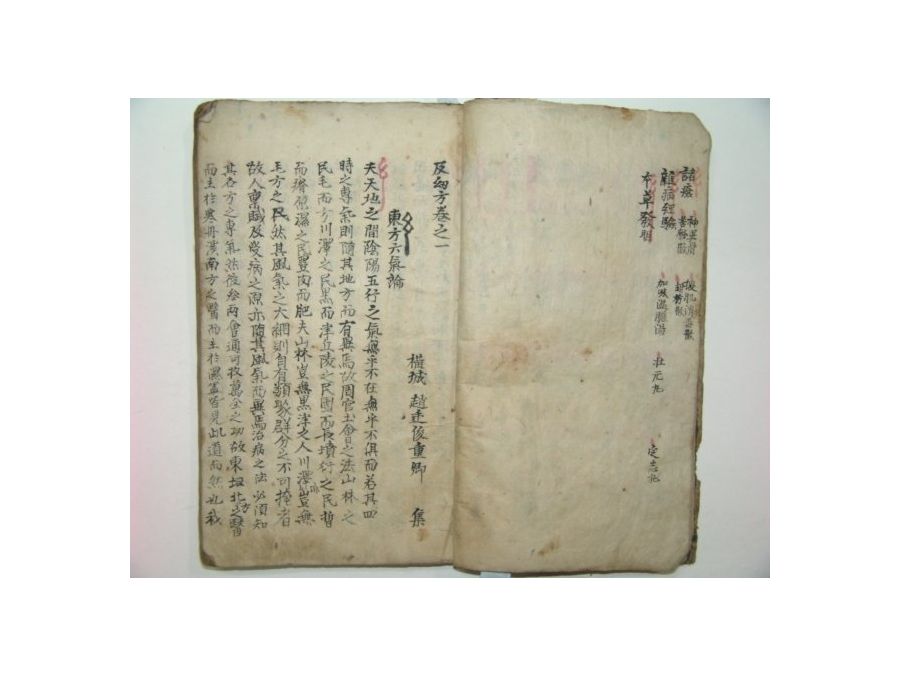 諸瘡
本草發明
加味滋腫湯
壯元丸
定志丸
及幼方卷之一
橫城 趙廷俊重卿 集
東方六氣論
夫天地之間陰陽五行之氣無乎不在無乎不俱而若其四
時之專氣則隨其地方而有異焉故周官土會之法山林之
民毛而方川澤之民黑而津丘陵之民團而長墳衍之民晳
而瘠原濕之民豐肉而肥夫山林豈無黑津之人川澤豈無
毛方之民然其風氣之大綱則自有類聚群分之不可掩者
故人稟賦及受病之源亦隨其風氣而異焉治病之法必須知
其各方之專氣然後參 會通可收萬全之功故東垣北方之醫
而主於寒丹溪南方之醫而主於濕 皆見此道而然也我